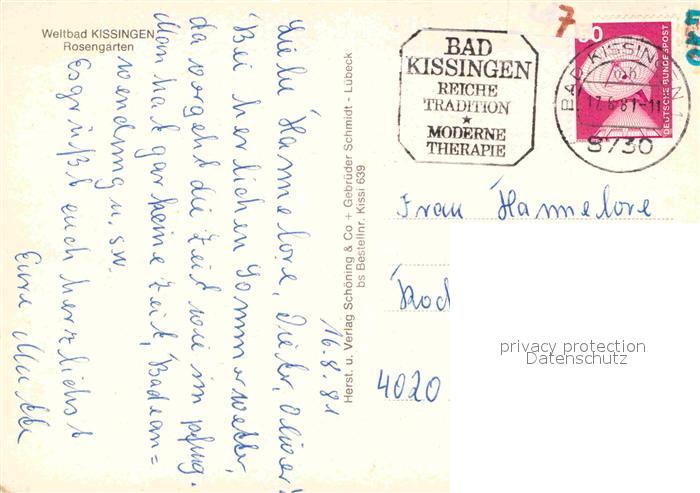 Weltbad KISSINGEN
Rosengarten
16.8.81
Liebe Hannelore, Dieter, Oliver!
Bei herlichen Sommerwetter,
da vergeht die Zeit wie im pflug.
Man hat gar keine Zeit, Badean=
wendung u. sw.
Es grüßt euch herzlichst
Eure Mutti
Herst. u. Verlag Schöning & Co + Gebrüder Schmidt - Lübeck
bs Bestellnr. Kissi 639
7
BAD
KISSINGEN
REICHE
TRADITION
★
MODERNE
THERAPIE
DEUTSCHE BUNDESPOST
BAD KISSINGEN 1
8730
Frau Hannelore
Rod
4020
privacy protection
Datenschutz